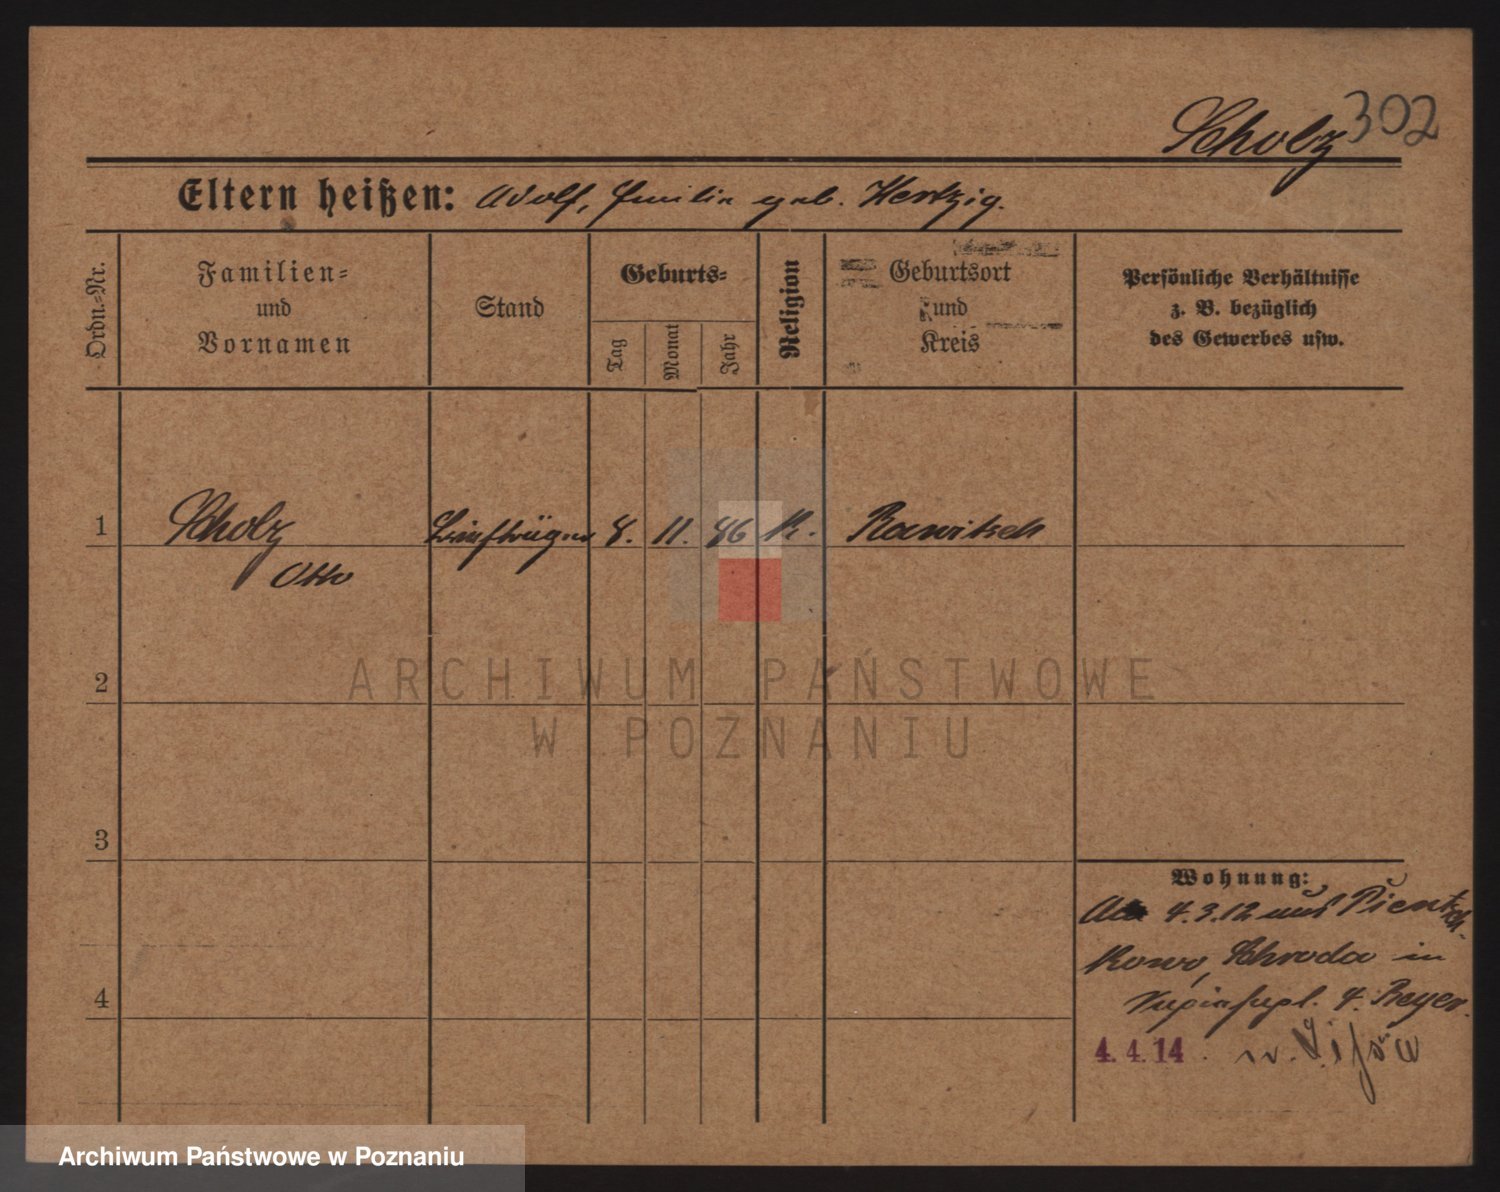 Scholz 302
Eltern heißen: Adolf, Emilie geb. Hertzig.
Ordn.-Nr.
Familien- und Vornamen
Stand
Geburts-
Tag
Monat
Jahr
Religion
Geburtsort und Kreis
Persönliche Verhältnisse
z. B. bezüglich
des Gewerbes usw.
1 Scholz 8. 11. 86 K. Rawitsch
Otto
ARCHIWUM PAŃSTWOWE
W POZNANIU
2
3
4
Wohnung:
4.3.12 aus Pientsch-
kowo, Schroda in
4. Beyer.
4. 4. 14. n.
Archiwum Państwowe w Poznaniu